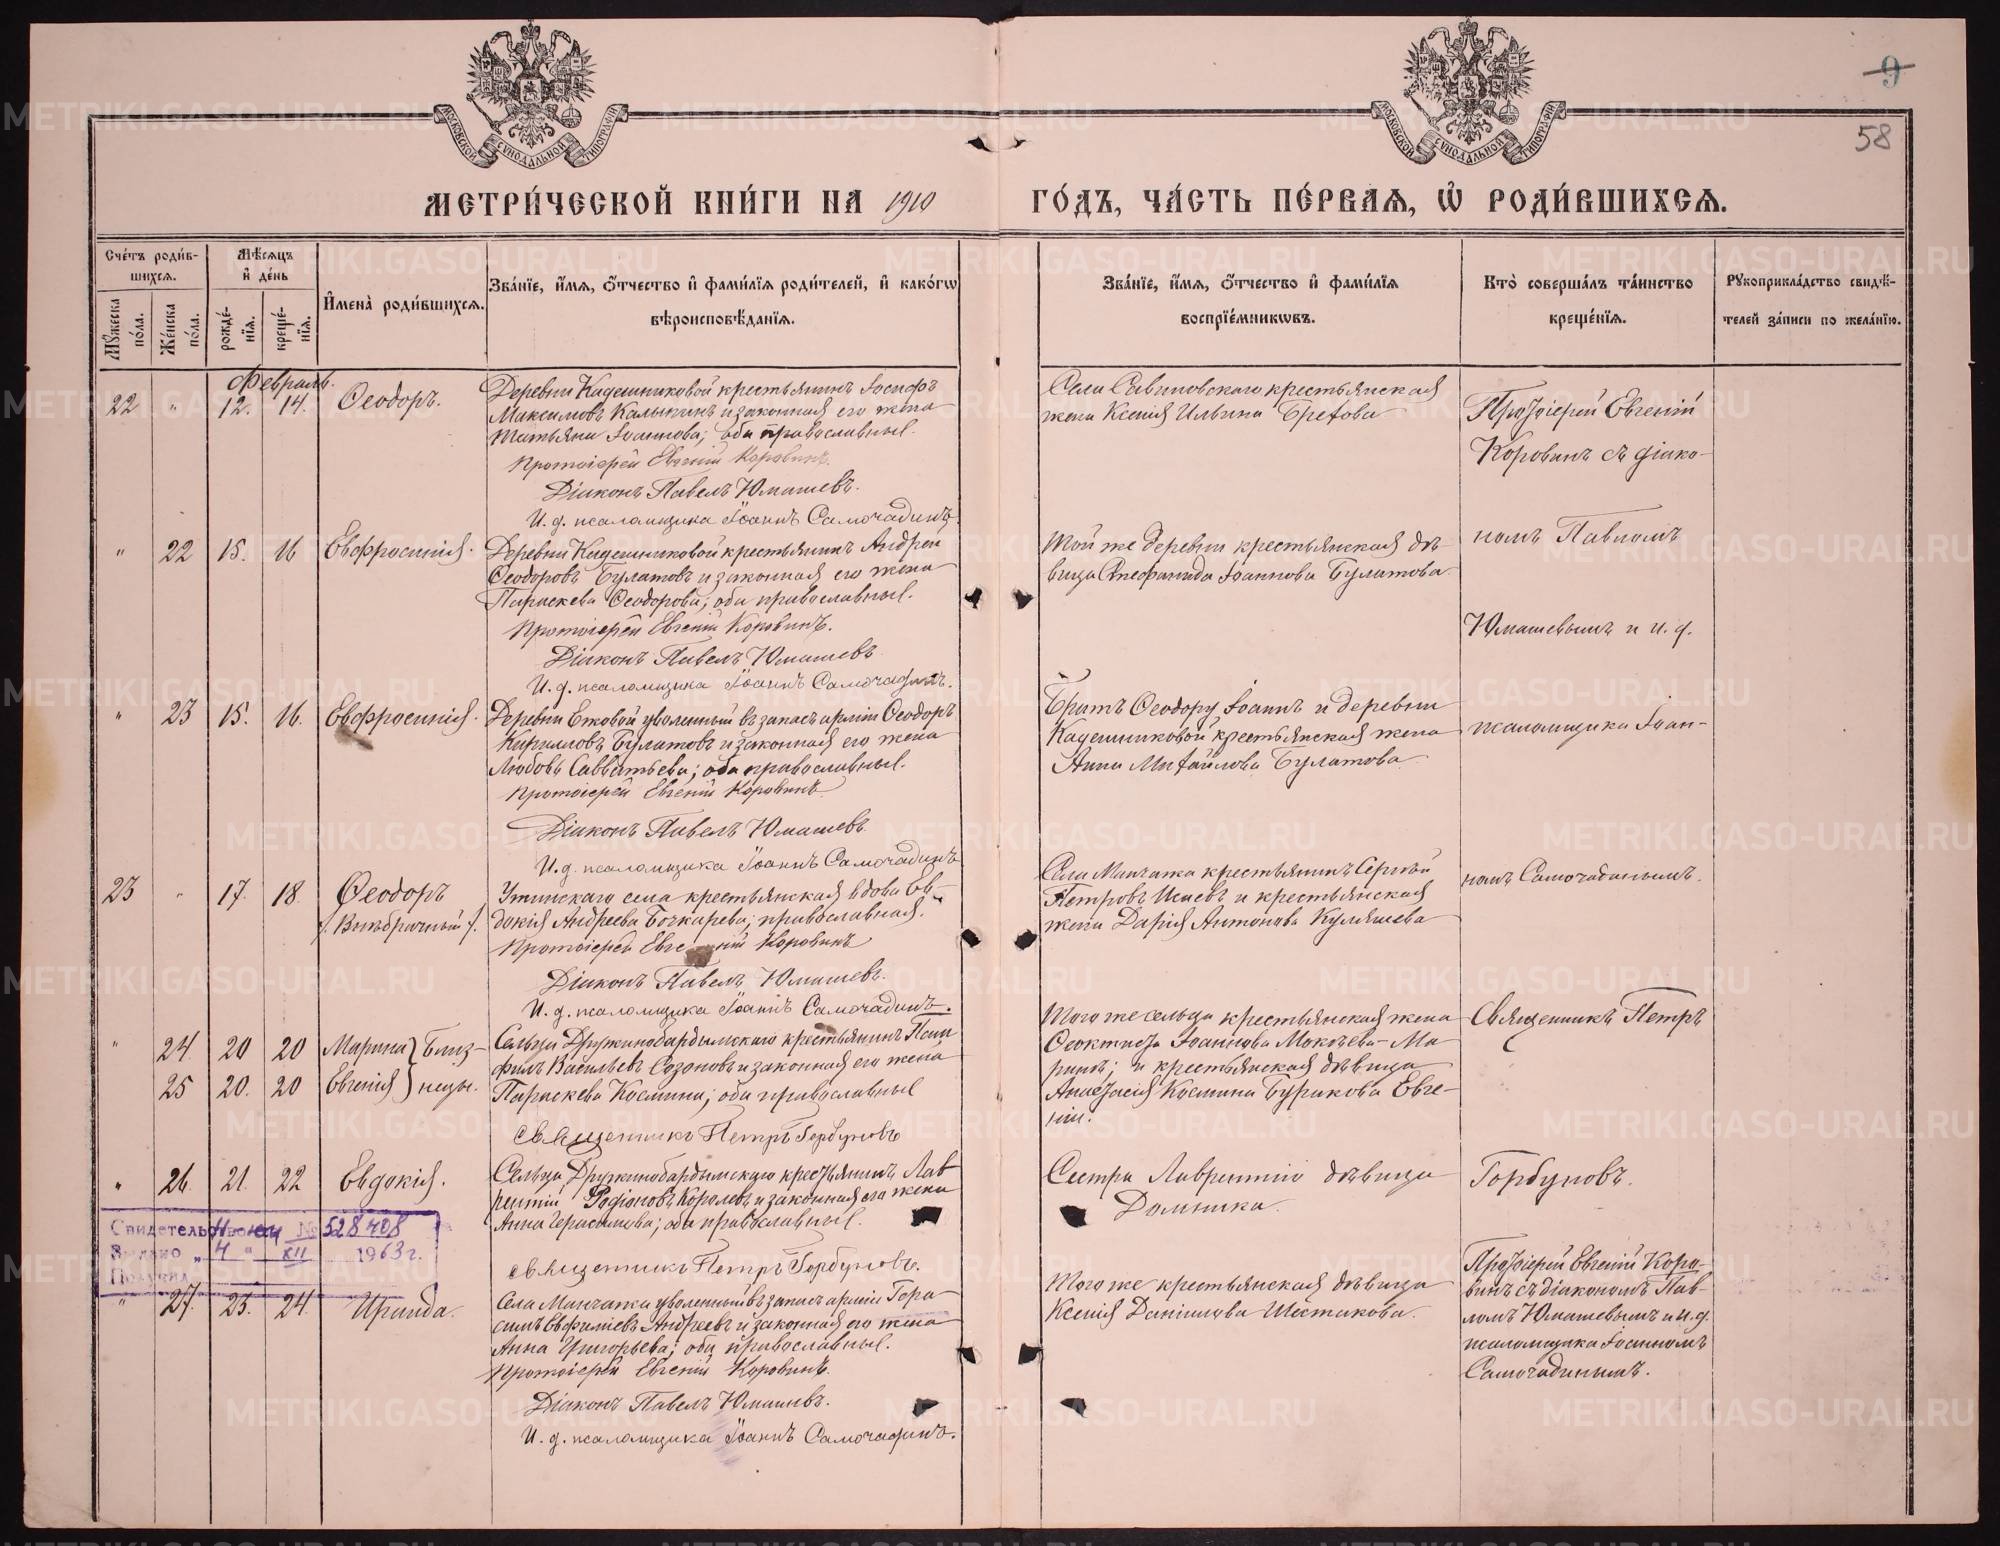 МОСКОВСКОЙ СУНОДАЛЬНОЙ ТИПОГРАФІИ
МОСКОВСКОЙ СУНОДАЛЬНОЙ ТИПОГРАФІИ
9
58
МЕТРИ́ЧЕСКОЙ КНИ́ГИ НА 1910 ГО́ДЪ, ЧА́СТЬ ПЕ́РВАЯ, Ѡ҆ РОДИ́ВШИХСЯ.
Сче́тъ роди́в-
шихся.
Му́жеска по́ла.
Же́нска по́ла.
Мѣ́сяцъ
и҆ де́нь
рожде́-
нїя.
креще́-
нїя.
И҆мена̀ роди́вшихся.
Зва́нїе, и҆́мя, ѻ҆́тчество и҆ фами́лїя роди́телей, и҆ како́гѡ
вѣроисповѣ́данїя.
Зва́нїе, и҆́мя, ѻ҆́тчество и҆ фами́лїя
воспрїе́мникѡвъ.
Кто̀ соверша́лъ та́инство
креще́нїя.
Рꙋкоприкла́дство свидѣ́-
телей за́писи по жела́нїю.
Февраль.
22 " 12. 14. Ѳеодоръ.
Деревни Кадешниковой крестьянинъ Іосифъ
Максимовъ Калынинъ и законная его жена
Татьяна Іоаннова; оба православные.
Протоіерей Евгеній Коровинъ.
Діаконъ Павелъ Юмашевъ.
И. д. псаломщика Іоаннъ Самочадинъ.
Села Савиновскаго крестьянская
жена Ксенія Ильина Бретова
Протоіерей Евгеній
Коровинъ съ діако-
номъ Павломъ
Юмашевымъ и и. д.
псаломщика Іоан-
номъ Самочадинымъ.
" 22 15. 16 Евфросинія.
Деревни Кадешниковой крестьянинъ Андрей
Ѳеодоровъ Булатовъ и законная его жена
Параскева Ѳеодорова; оба православные.
Протоіерей Евгеній Коровинъ.
Діаконъ Павелъ Юмашевъ
И. д. псаломщика Іоаннъ Самочадинъ.
Той же деревни крестьянская дѣ-
вица Стефанида Іоаннова Булатова.
" 23 15. 16. Евфросинія.
Деревни Ежовой уволенный въ запасъ арміи Ѳеодоръ
Кирилловъ Булатовъ и законная его жена
Любовь Савватьева; оба православные.
Протоіерей Евгеній Коровинъ
Діаконъ Павелъ Юмашевъ
И. д. псаломщика Іоаннъ Самочадинъ
Братъ Ѳеодору Іоаннъ и деревни
Кадешниковой крестьянская жена
Анна Михайлова Булатова
23 " 17. 18. Ѳеодоръ
/. Внѣбрачный /.
Утинскаго села крестьянская вдова Ев-
докія Андреева Бочкарева; православная.
Протоіерей Евгеній Коровинъ
Діаконъ Павелъ Юмашевъ.
И. д. псаломщика Іоаннъ Самочадинъ.
Села Манчажа крестьянинъ Сергѣй
Петровъ Исаевъ и крестьянская
жена Дарія Антонова Куляшева
" 24. 20 20 Марина } Близ-
25 20. 20 Евгенія } нецы.
Сельца Дружинобардымскаго крестьянинъ Пан-
филъ Васильевъ Созоновъ и законная его жена
Параскева Космина; оба православные
Священникъ Петръ Горбуновъ
Того же сельца крестьянская жена
Ѳеоктиста Іоаннова Мокѣева – Ма-
ринѣ; и крестьянская дѣвица
Анастасія Космина Бурикова Евге-
ніи.
Священникъ Петръ
Горбуновъ.
" 26. 21. 22 Евдокія.
Сельца Дружинобардымскаго крестьянинъ Лав-
рентій Родіоновъ Королевъ и законная его жена
Анна Герасимова; оба православные.
Священникъ Петръ Горбуновъ.
Сестра Лаврентію дѣвица
Домника.
Свидетельство № 528408
Выдано „4“ XII 1963 г.
Получил
" 27. 23. 24 Ираида.
Села Манчажа уволенный въ запасъ арміи Гера-
симъ Евфиміевъ Андреевъ и законная его жена
Анна Григорьева; оба православные.
Протоіерей Евгеній Коровинъ.
Діаконъ Павелъ Юмашевъ.
И. д. псаломщика Іоаннъ Самочадинъ.
Того же крестьянская дѣвица
Ксенія Даніилова Шестакова.
Протоіерей Евгеній Коро-
винъ съ діакономъ Пав-
ломъ Юмашевымъ и и. д.
псаломщика Іоанномъ
Самочадинымъ.
METRIKI.GASO-URAL.RU